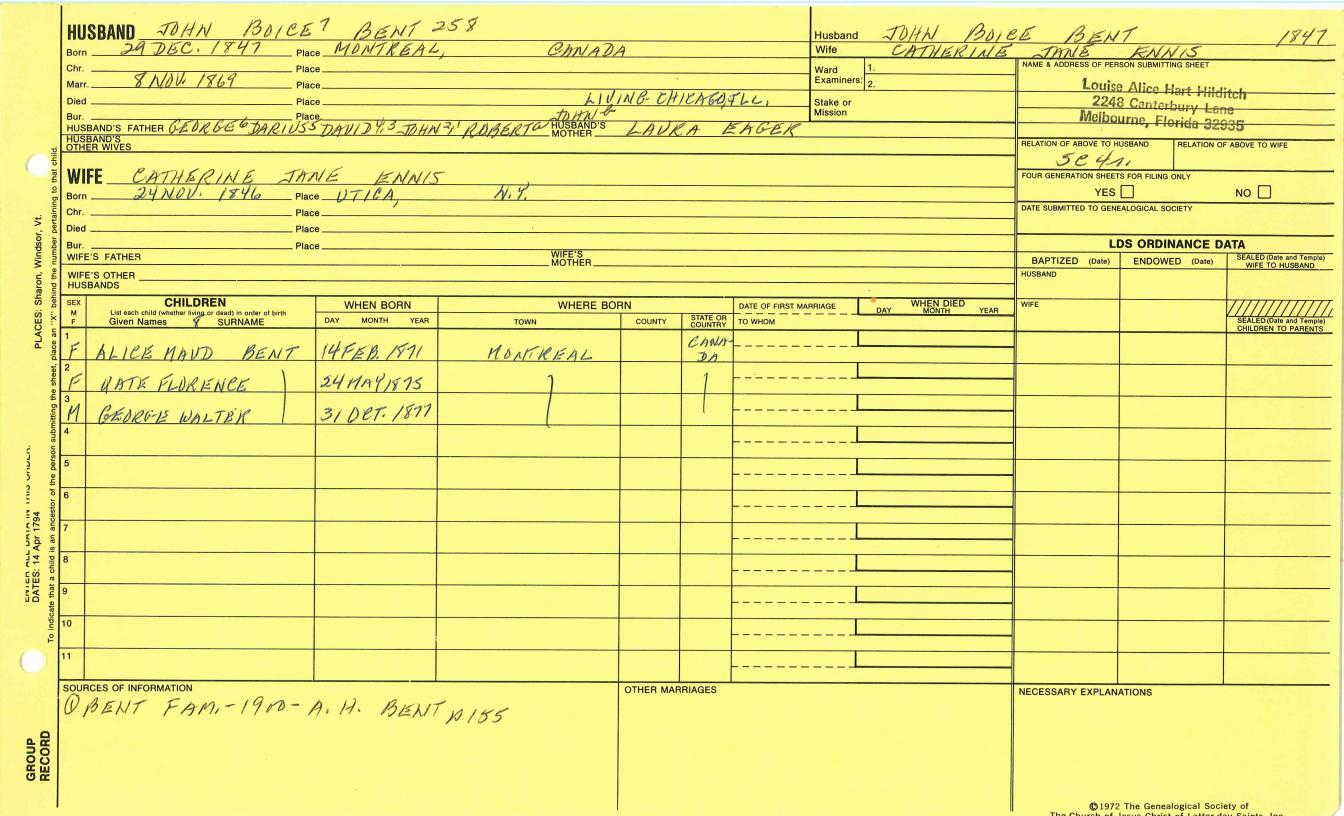 HUSBAND JOHN BOICE7 BENT 258
Born 29 DEC. 1847 Place MONTREAL, CANADA
Chr. Place
Marr. 8 NOV. 1869 Place
Died Place LIVING CHICAGO, ILL.
Bur. Place
HUSBAND'S FATHER GEORGE6 DARIUS5 DAVID4,3 JOHN2,1 ROBERTW JOHNG HUSBAND'S MOTHER LAURA EAGER
HUSBAND'S OTHER WIVES
WIFE CATHERINE JANE ENNIS
Born 24 NOV. 1846 Place UTICA, N.Y.
Chr. Place
Died Place
Bur. Place
WIFE'S FATHER WIFE'S MOTHER
WIFE'S OTHER HUSBANDS
Husband JOHN BOICE BENT 1847
Wife CATHERINE JANE ENNIS
Ward Examiners: 1.
2.
Stake or Mission
NAME & ADDRESS OF PERSON SUBMITTING SHEET
Louise Alice Hart Hilditch
2248 Canterbury Lane
Melbourne, Florida 32935
RELATION OF ABOVE TO HUSBAND RELATION OF ABOVE TO WIFE
5C4r.
FOUR GENERATION SHEETS FOR FILING ONLY
YES NO
DATE SUBMITTED TO GENEALOGICAL SOCIETY
LDS ORDINANCE DATA
BAPTIZED (Date) ENDOWED (Date) SEALED (Date and Temple) WIFE TO HUSBAND
HUSBAND
WIFE
SEALED (Date and Temple) CHILDREN TO PARENTS
SEX M F CHILDREN WHEN BORN WHERE BORN DATE OF FIRST MARRIAGE WHEN DIED
List each child (whether living or dead) in order of birth
Given Names 8 SURNAME DAY MONTH YEAR TOWN COUNTY STATE OR COUNTRY TO WHOM DAY MONTH YEAR
1 F ALICE MAUD BENT 14 FEB. 1871 MONTREAL CANADA
2 F KATE FLORENCE 24 MAY 1875
3 M GEORGE WALTER 31 OCT. 1877
4
5
6
7
8
9
10
11
SOURCES OF INFORMATION
① BENT FAM.-1900- A. H. BENT p155
OTHER MARRIAGES
NECESSARY EXPLANATIONS
©1972 The Genealogical Society of
The Church of Jesus Christ of Latter-day Saints, Inc.
ENTER ALL DATA IN THIS ORDER:
DATES: 14 Apr 1794 PLACES: Sharon, Windsor, Vt.
To indicate that a child is an ancestor of the person submitting the sheet, place an "X" behind the number pertaining to that child.
GROUP RECORD